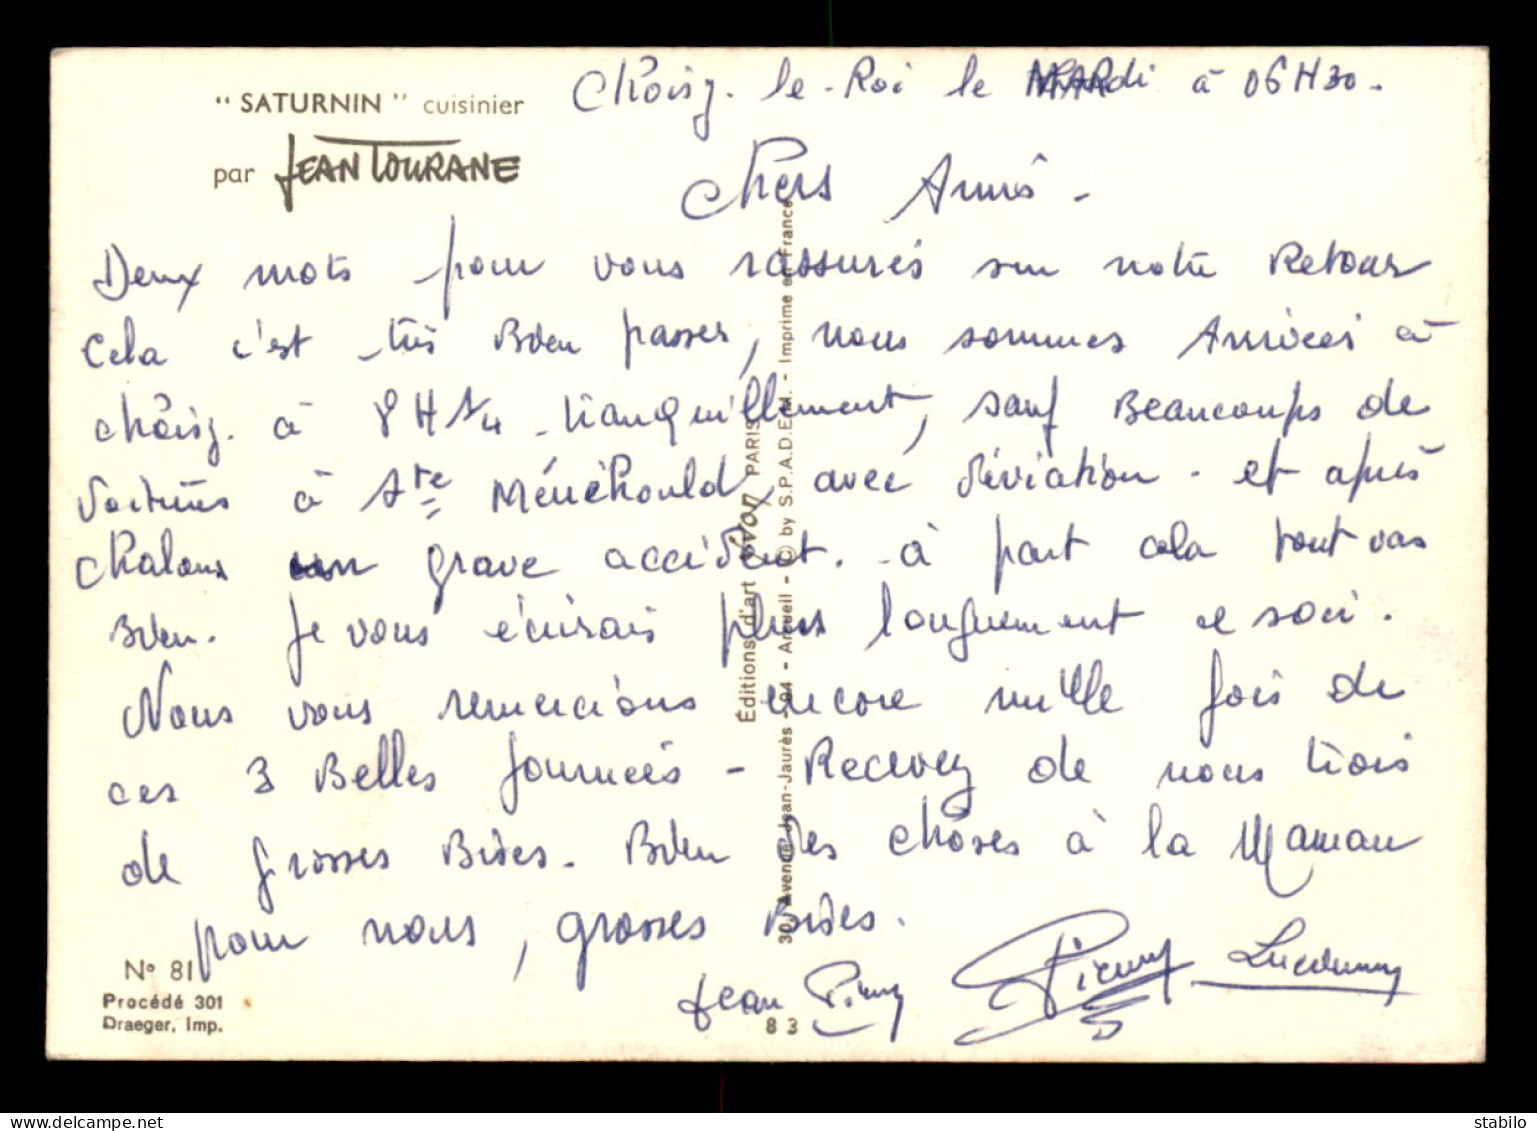 " SATURNIN " cuisinier
par JEAN TOURANE
Choisy-le-Roi le MARdi à 06H30.
Chers Amis -
Deux mots pour vous rassurés sur notre Retour
Cela c'est très Bien passer, nous sommes Arrivées à
Choisy. à 8H1/4 tranquillement, sauf Beaucoups de
voitures à Ste Ménéhould, avec déviation - et après
Chalons un grave accident. - à part cela tout vas
Bien. Je vous écrirais plus longuement ce soir.
Nous vous remercions encore mille fois de
ces 3 Belles Journées - Recevez de nous trois
de grosses Bises. Bien des choses à la Maman
pour nous, grosses Bises.
Jean Pierre Pierre Lucienne
Éditions d'art Yvon PARIS
30, Avenue Jean-Jaurès - 94 - Arcueil - © by S.P.A.D.E.M. - Imprimé en France
N° 81
Procédé 301
Draeger, Imp.
83
www.delcampe.net
stabilo